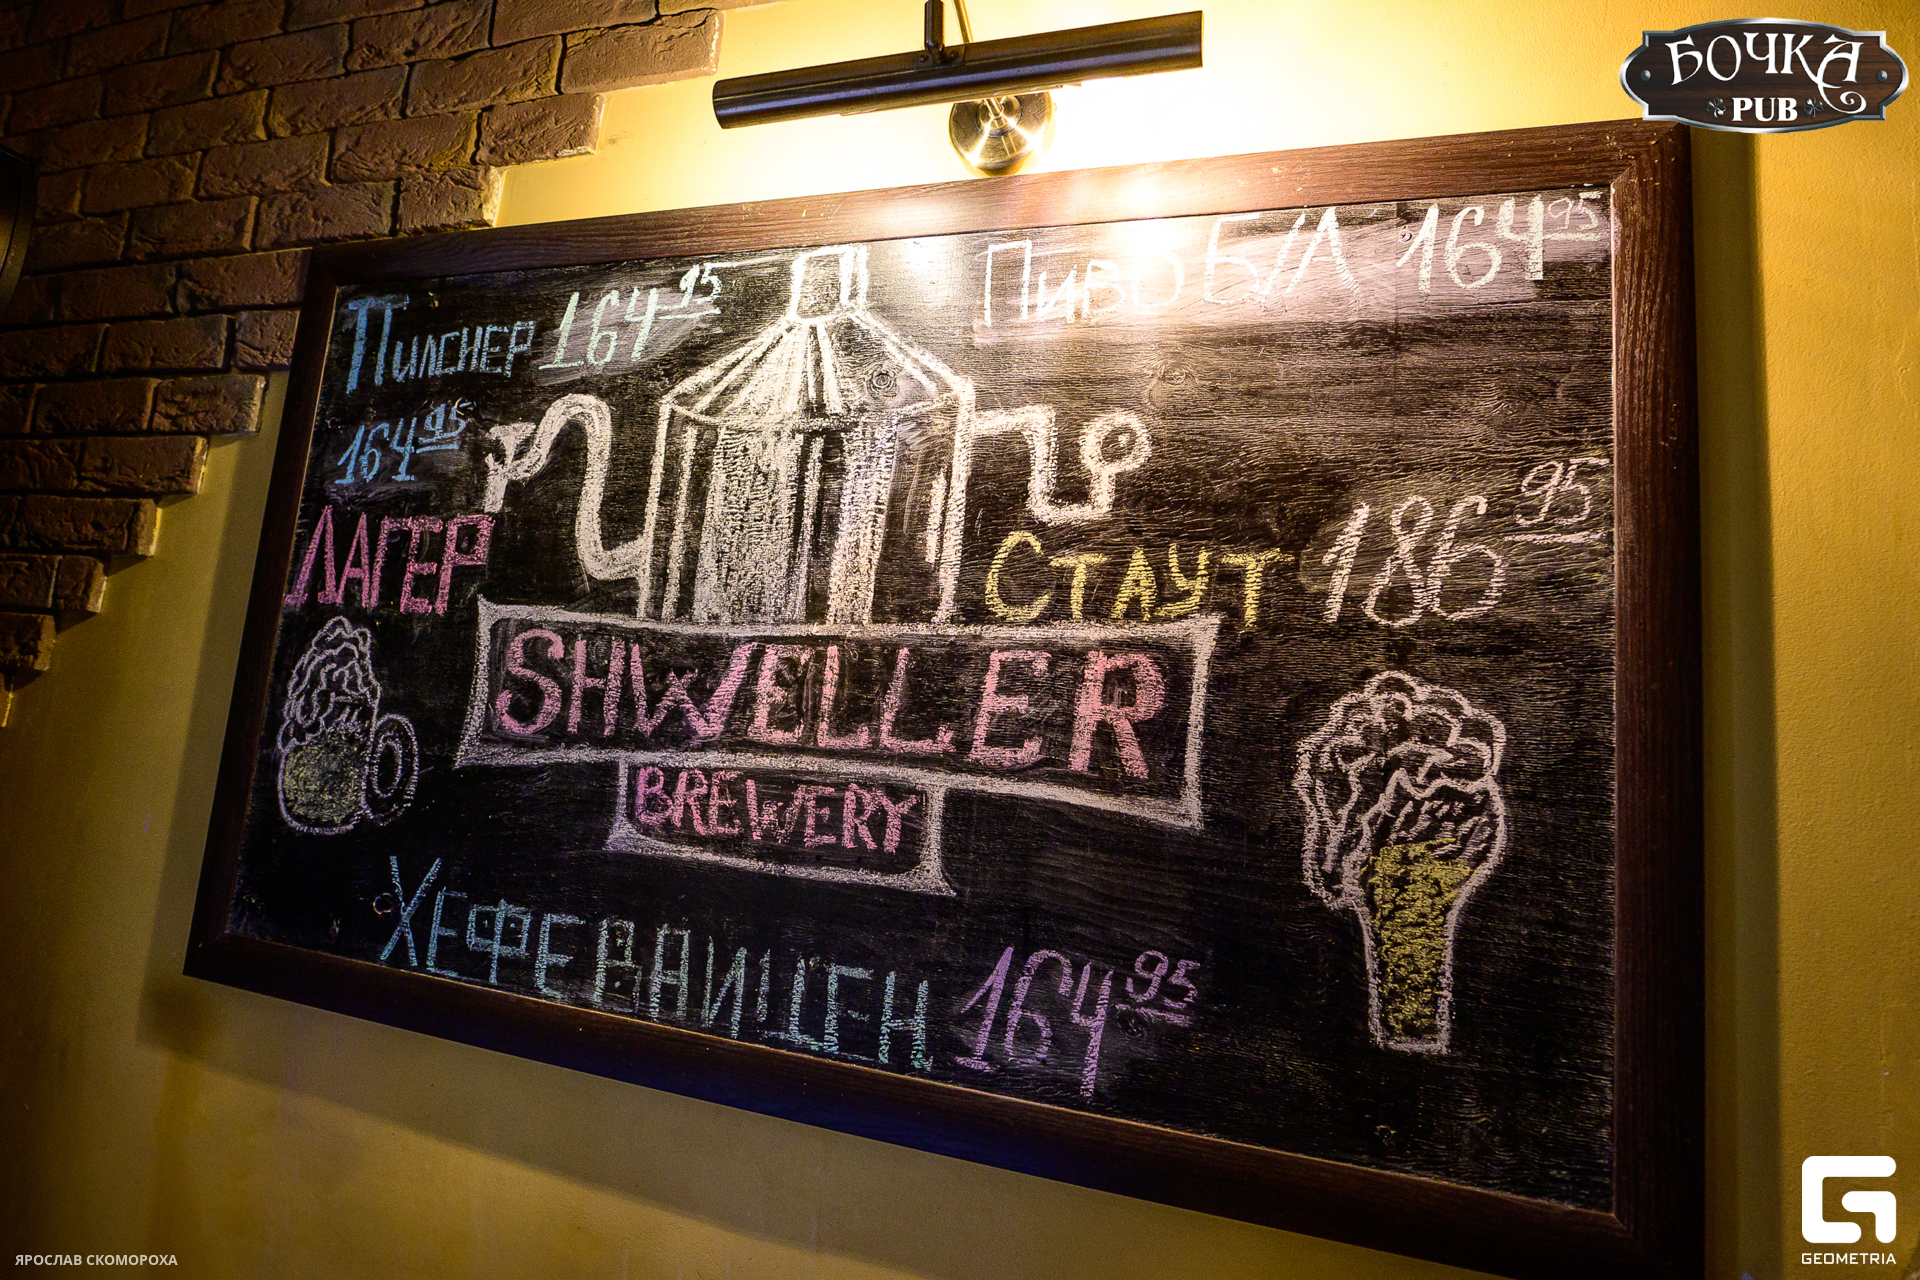 БОЧКА
PUB
Пилснер 164 95
Пиво Б/А 164 95
164 95
ЛАГЕР
Стаут 186 95
SHWELLER
BREWERY
ХЕФЕВАИЦЕН 164 95
ЯРОСЛАВ СКОМОРОХА
GEOMETRIA